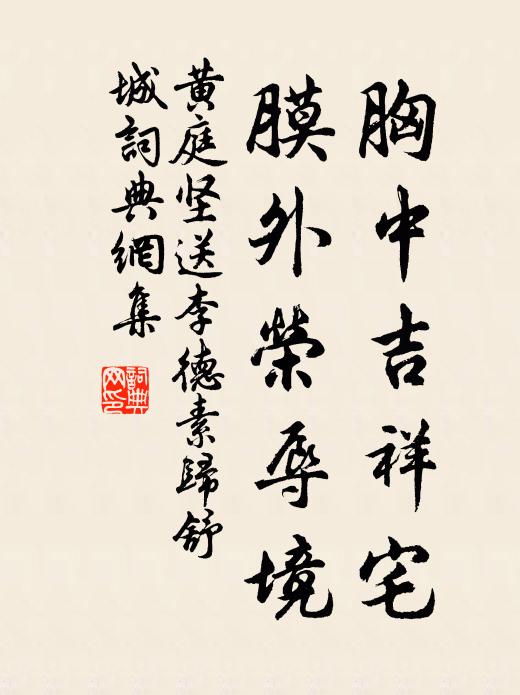 胸中吉祥宅
膜外榮辱境
黄庭坚送李德素歸舒
城詞典網集
詞典
网印